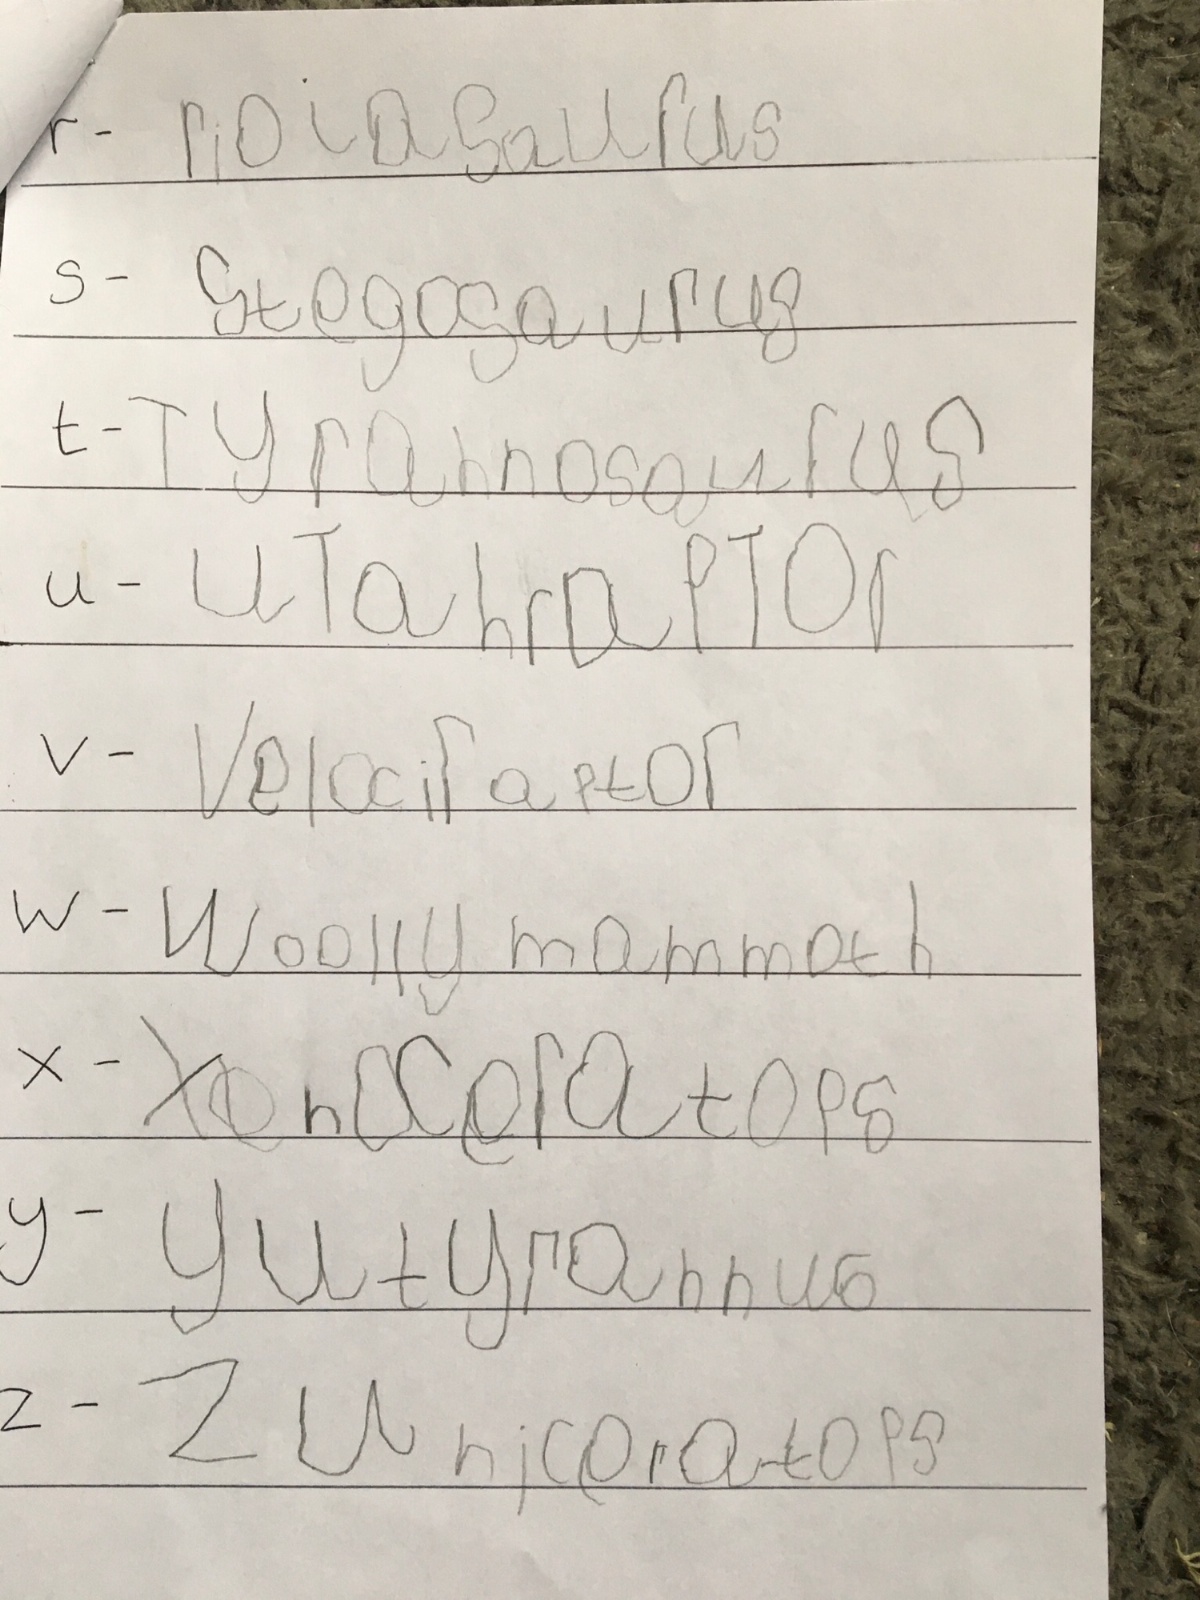 r- riojasaurus
s- Stegosaurus
t- Tyrannosaurus
u- UTahraPTOr
v- Velociraptor
w- Woolly mammoth
x- Xenoceratops
y- yutyrannus
z- Zuniceratops